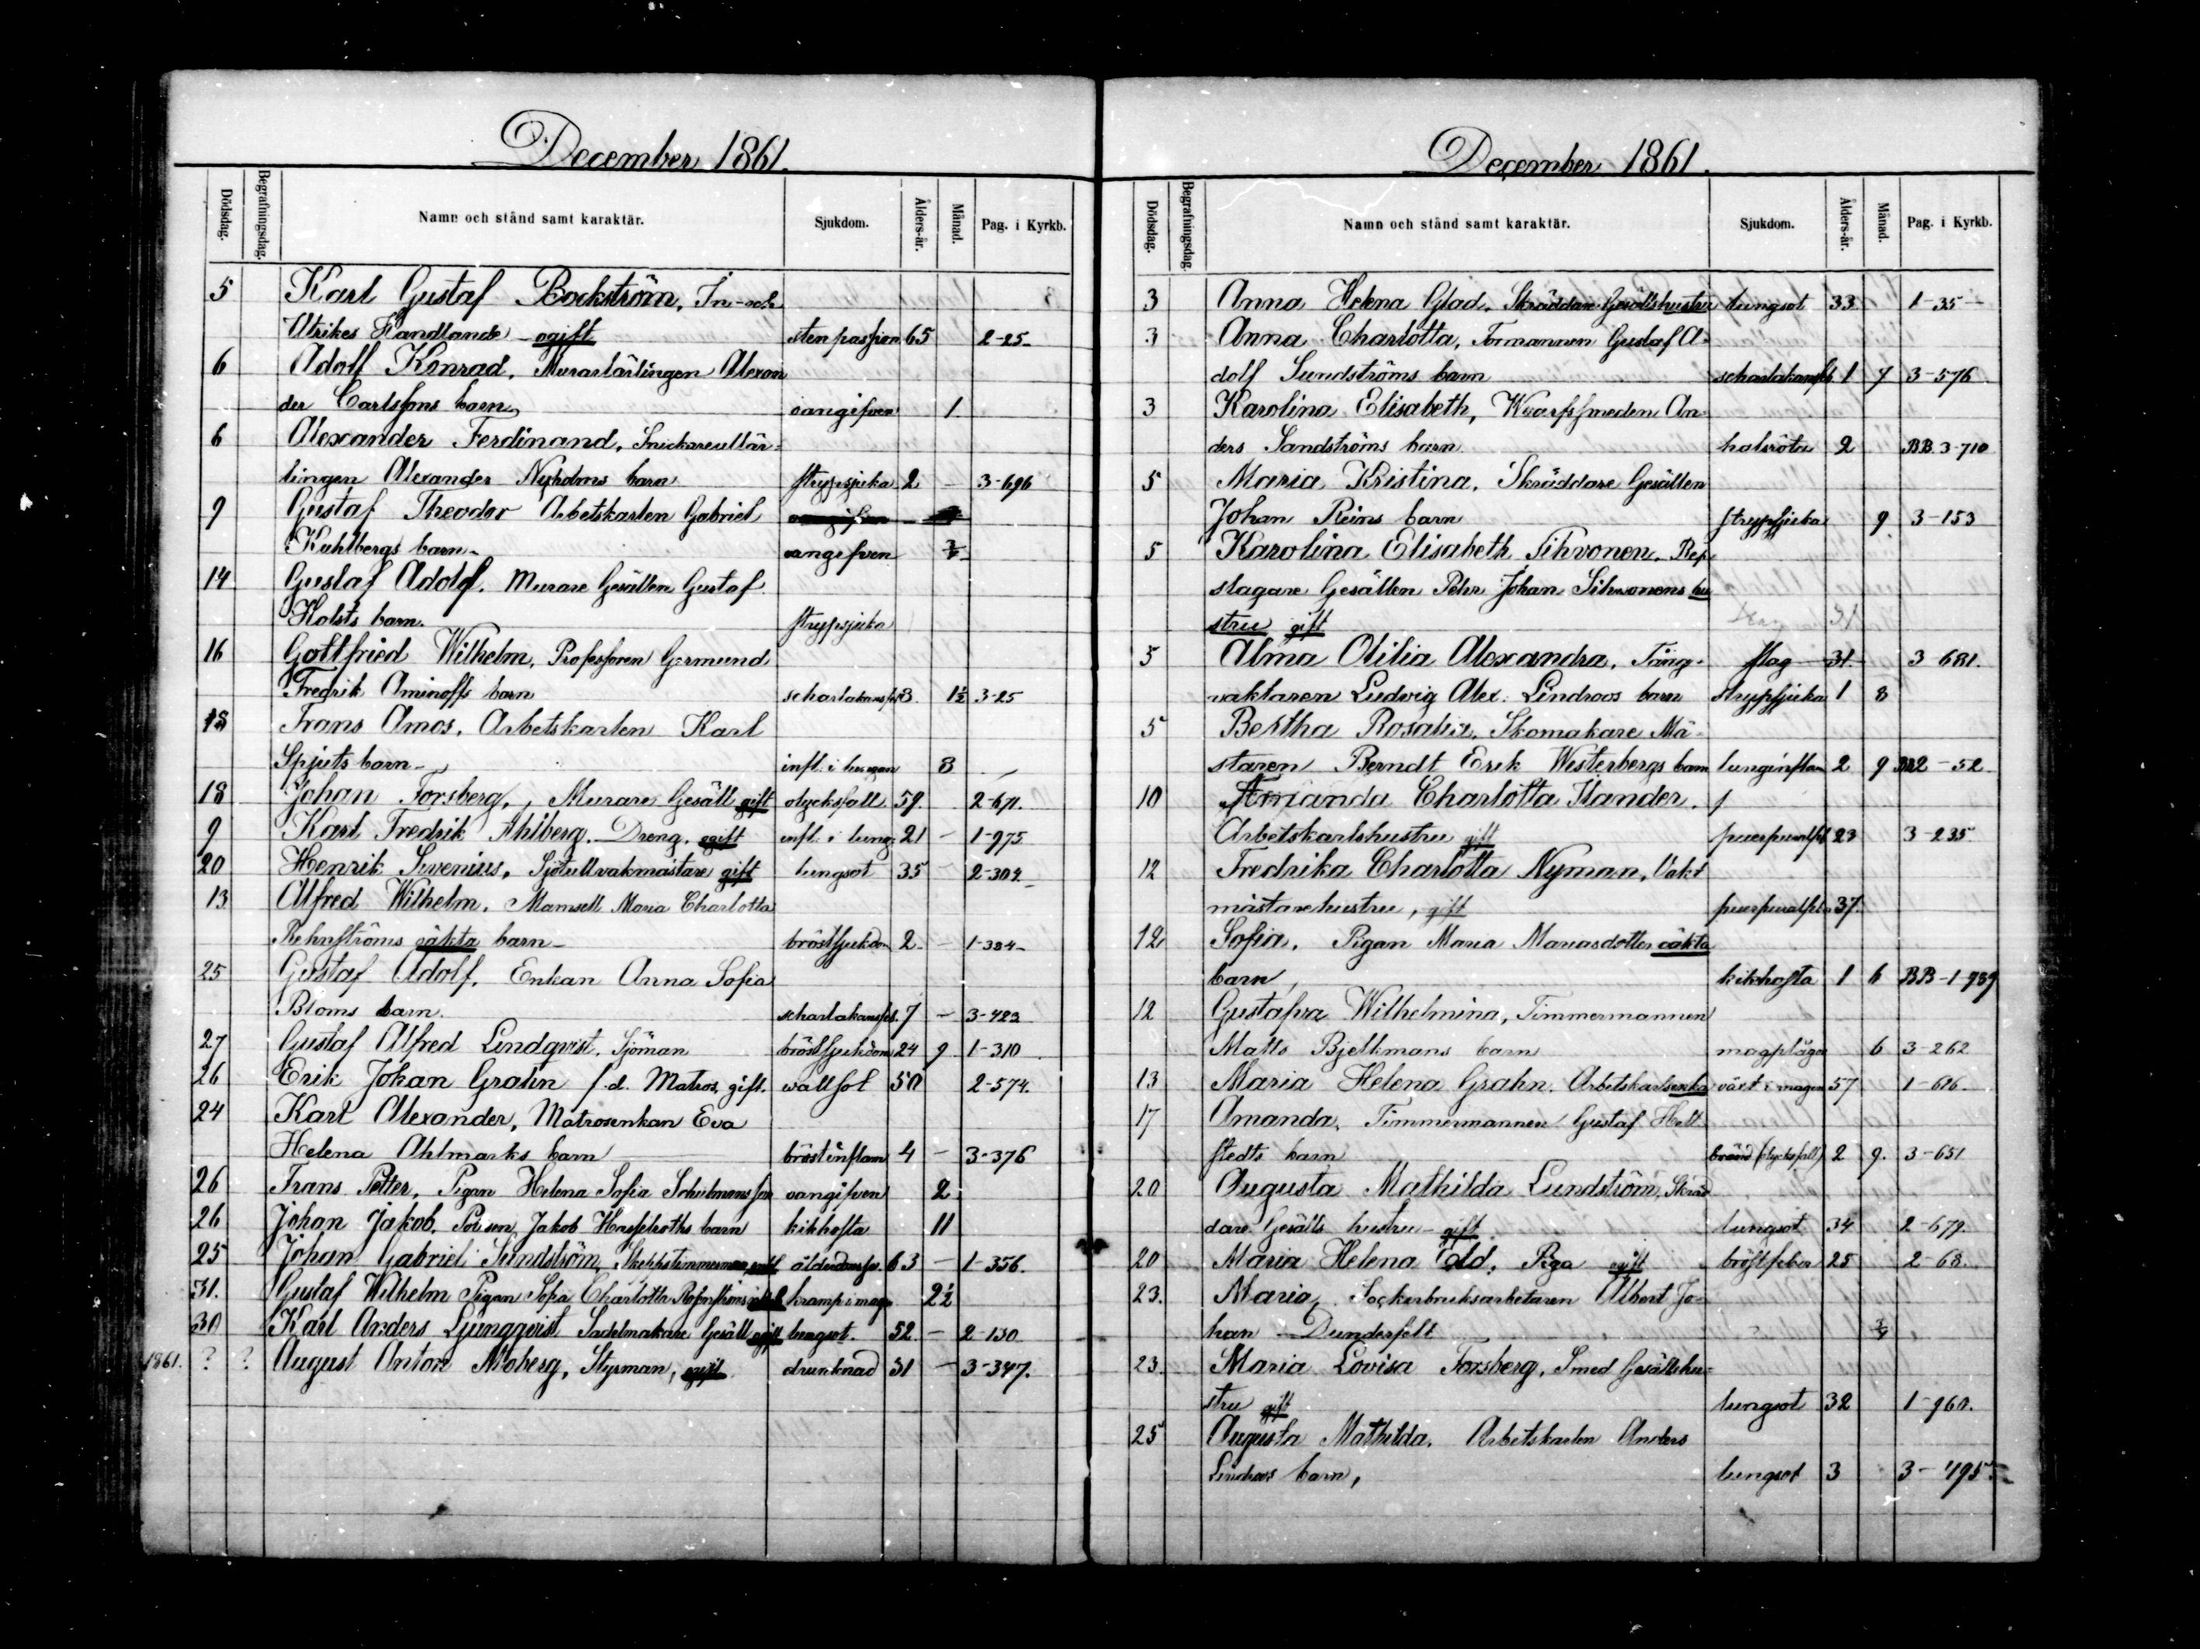 December 1861.
Dödsdag. Begrafningsdag. Namn och stånd samt karaktär. Sjukdom. Ålders-år. Månad. Pag. i Kyrkb.
5 Karl Gustaf Bockström, In- och
Utrikes Handlande ogift stenpassion 65 2-25
6 Adolf Konrad, Murarlärlingen Alexan
der Carlssons barn oangifven 1
6 Alexander Ferdinand, Snickare
lingen Alexander Nyholms barn strypsjuka 2 – 3-696
9 Gustaf Theodor Arbetskarlen Gabriel
Kuhlbergs barn oangifven
14 Gustaf Adolf. Murare Gesällen Gustaf
Holsts barn. strypsjuka
16 Gottfried Wilhelm, Professoren Germund
Fredrik Aminoffs barn scharlakansf. 3 1½ 3-25
18 Frans Amos, Arbetskarlen Karl
Spjuts barn infl. i lungan 8 –
18 Johan Forsberg, Murare Gesäll gift olycksfall 59. 2-671.
9 Karl Fredrik Ahlberg. Dreng, ogift infl. i lung. 21 – 1-975
20 Henrik Sevenius, Sjötullvakmästare gift lungsot 35 – 2-304
13 Alfred Wilhelm. Mamsell Maria Charlotta
Rehnströms oäkta barn bröstsjukdom 2 – 1-384
25 Gustaf Adolf. Enkan Anna Sofia
Bloms barn. scharlakansfeb. 7 – 3-423
27 Gustaf Alfred Lindqvist. Sjöman bröstsjukdom 24 9 1-310
26 Erik Johan Grahn f.d. Matros, gift. vattsot 50 2-574.
24 Karl Alexander, Matrosenkan Eva
Helena Ahlmarks barn bröstinflam 4 – 3-376
26 Frans Petter, Pigan Helena Sofia Schulmans oangifven 2
26 Johan Jakob. Jakob Hasselroths barn kikhosta 11
25 Johan Gabriel Sundström, Skeppstimmerman, ålderdomssv. 63 – 1-356.
31. Gustaf Wilhelm Pigan Sofia Charlotta kramp i mag. 2½
30 Karl Anders Ljungqvist Sadelmakare Gesäll ogift lungsot. 52 – 2-130
1861. ? ? August Anton Moberg, Styrman, ogift drunknad 31 – 3-347.
December 1861.
Dödsdag. Begrafningsdag. Namn och stånd samt karaktär. Sjukdom. Ålders-år. Månad. Pag. i Kyrkb.
3 Anna Helena Glad. Skräddare Gesällshustru lungsot 33 1-35
3 Anna Charlotta, Formannen Gustaf A-
dolf Sundströms barn scharlakansfeb. 1 7 3-576
3 Karolina Elisabeth, Kvarfssmeden An
ders Sandströms barn halsröta 2 BB. 3-710
5 Maria Kristina, Skräddare Gesällen
Johan Reins barn strypsjuka 9 3-153
5 Karolina Elisabeth Sihvonen, Rep
slagare Gesällen Pehr Johan Sihvonens hu
stru gift
5 Alma Otilia Alexandra, Tång- slag 31. 3-681.
vaktaren Ludvig Alex. Lindroos barn strypsjuka 1 8
5 Bertha Rosalia, Skomakare Mä-
staren Berndt Erik Westerbergs barn lunginflam 2 9 BB2-52
10 Amanda Charlotta Ilander.
Arbetskarlshustru gift puerpuralfeb 23 3-235
12 Fredrika Charlotta Nyman, Vakt
mästarehustru, gift puerpuralfeb 37.
12 Sofia, Pigan Maria Mariasdotter oäkta
barn, kikhosta 1 6 BB-1-939
12 Gustafva Wilhelmina, Timmermannen
Matts Bjelkmans barn magplåga 6 3-262
13 Maria Helena Grahn. Arbetskarlsenka växt i magen 57 1-616
17 Amanda. Timmermannen Gustaf Hell
stedts barn bränd (olycksfall) 2 9. 3-651
20 Augusta Mathilda Lundström, Skräd
dare Gesälls hustru gift lungsot 34 2-679.
20 Maria Helena Eld. Piga ogift bröstfeber 25 2-68.
23. Maria, Sockerbruksarbetaren Albert Jo-
han Dunderfelt ¾
23. Maria Lovisa Forsberg, Smed Gesällshu-
stru gift lungsot 32 1-960.
25 Augusta Mathilda. Arbetskarlen Anders
Lindroos barn, lungsot 3 3-495